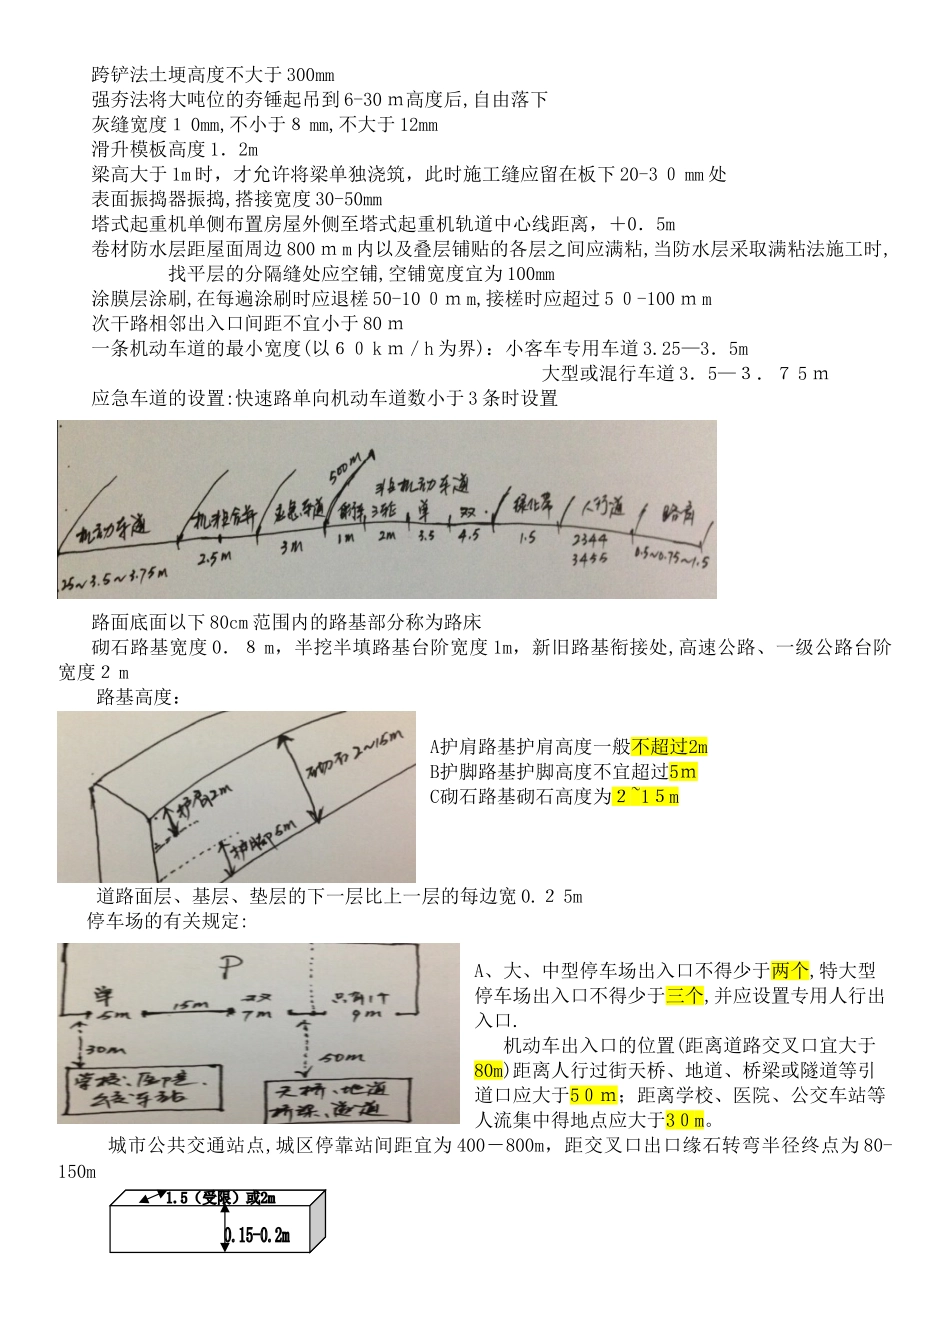 跨铲法土埂高度不大于 300mm
强夯法将大吨位的夯锤起吊到 6-30 ｍ高度后,自由落下
灰缝宽度１ 0mm,不小于８ mm,不大于 12mm
滑升模板高度 1．2m
梁高大于 1m 时，才允许将梁单独浇筑，此时施工缝应留在板下 20-3 ０ mm 处
表面振捣器振捣,搭接宽度 30-50mm
塔式起重机单侧布置房屋外侧至塔式起重机轨道中心线距离，＋0．5m
卷材防水层距屋面周边 800 ｍ m 内以及叠层铺贴的各层之间应满粘,当防水层采取满粘法施工时,
找平层的分隔缝处应空铺,空铺宽度宜为 100mm
涂膜层涂刷,在每遍涂刷时应退槎 50-10 ０ｍ m,接槎时应超过５０-100 ｍ m
次干路相邻出入口间距不宜小于 80 ｍ
一条机动车道的最小宽度(以６０ kｍ／h 为界)：小客车专用车道 3.25—3．5m
大型或混行车道 3．5—３．７５ｍ
应急车道的设置:快速路单向机动车道数小于 3 条时设置
500m
非机动车道
机动车道 机非合并 应急车道 三轮 单 双 绿化带 人行道 路肩
.25～3.5～3.75m 2.5m 3m 1m 2m 3.5 4.5 1.5 2344 0.5～0.75～1.5
3455
路面底面以下 80cm 范围内的路基部分称为路床
砌石路基宽度 0．８ m，半挖半填路基台阶宽度 1m，新旧路基衔接处,高速公路、一级公路台阶
宽度２ m
路基高度：
护肩2m
砌石2~15m
护脚5m
A护肩路基护肩高度一般不超过2m
B护脚路基护脚高度不宜超过5ｍ
C砌石路基砌石高度为２~1５m
道路面层、基层、垫层的下一层比上一层的每边宽 0.２ 5m
停车场的有关规定:
P
单 双 只有1个
5m 15m 7m 9m
30m 50m
学校、医院、
公交车站
天桥、地道
桥梁、隧道
A、大、中型停车场出入口不得少于两个,特大型
停车场出入口不得少于三个,并应设置专用人行出
入口.
机动车出入口的位置(距离道路交叉口宜大于
80m)距离人行过街天桥、地道、桥梁或隧道等引
道口应大于５０ｍ；距离学校、医院、公交车站等
人流集中得地点应大于３０m。
城市公共交通站点,城区停靠站间距宜为 400－800m，距交叉口出口缘石转弯半径终点为 80-
150m
1.5（受限）或2m
0.15-0.2m